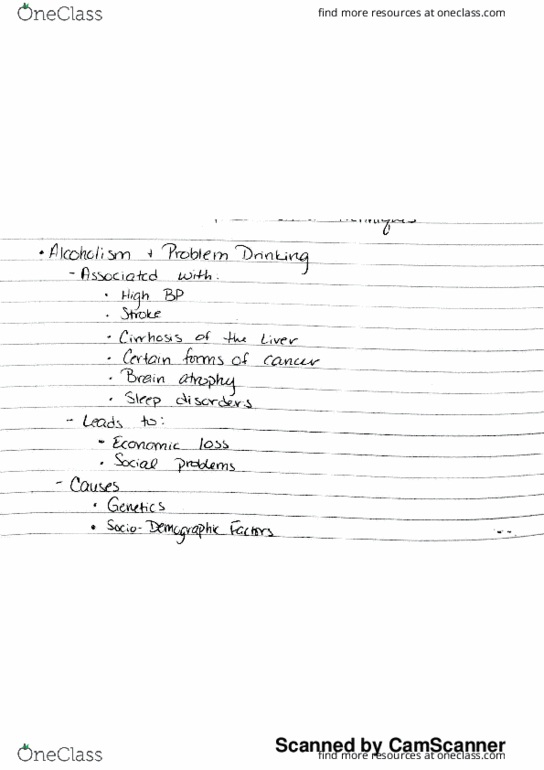 OneClass
find more resources at oneclass.com
• Alcoholism + Problem Drinking
- Associated with:
• High BP
• Stroke
• Cirrhosis of the Liver
• Certain forms of cancer
• Brain atrophy
• Sleep disorders
- Leads to:
• Economic loss
• Social problems
- Causes
• Genetics
• Socio-Demographic Factors
Scanned by CamScanner
OneClass
find more resources at oneclass.com